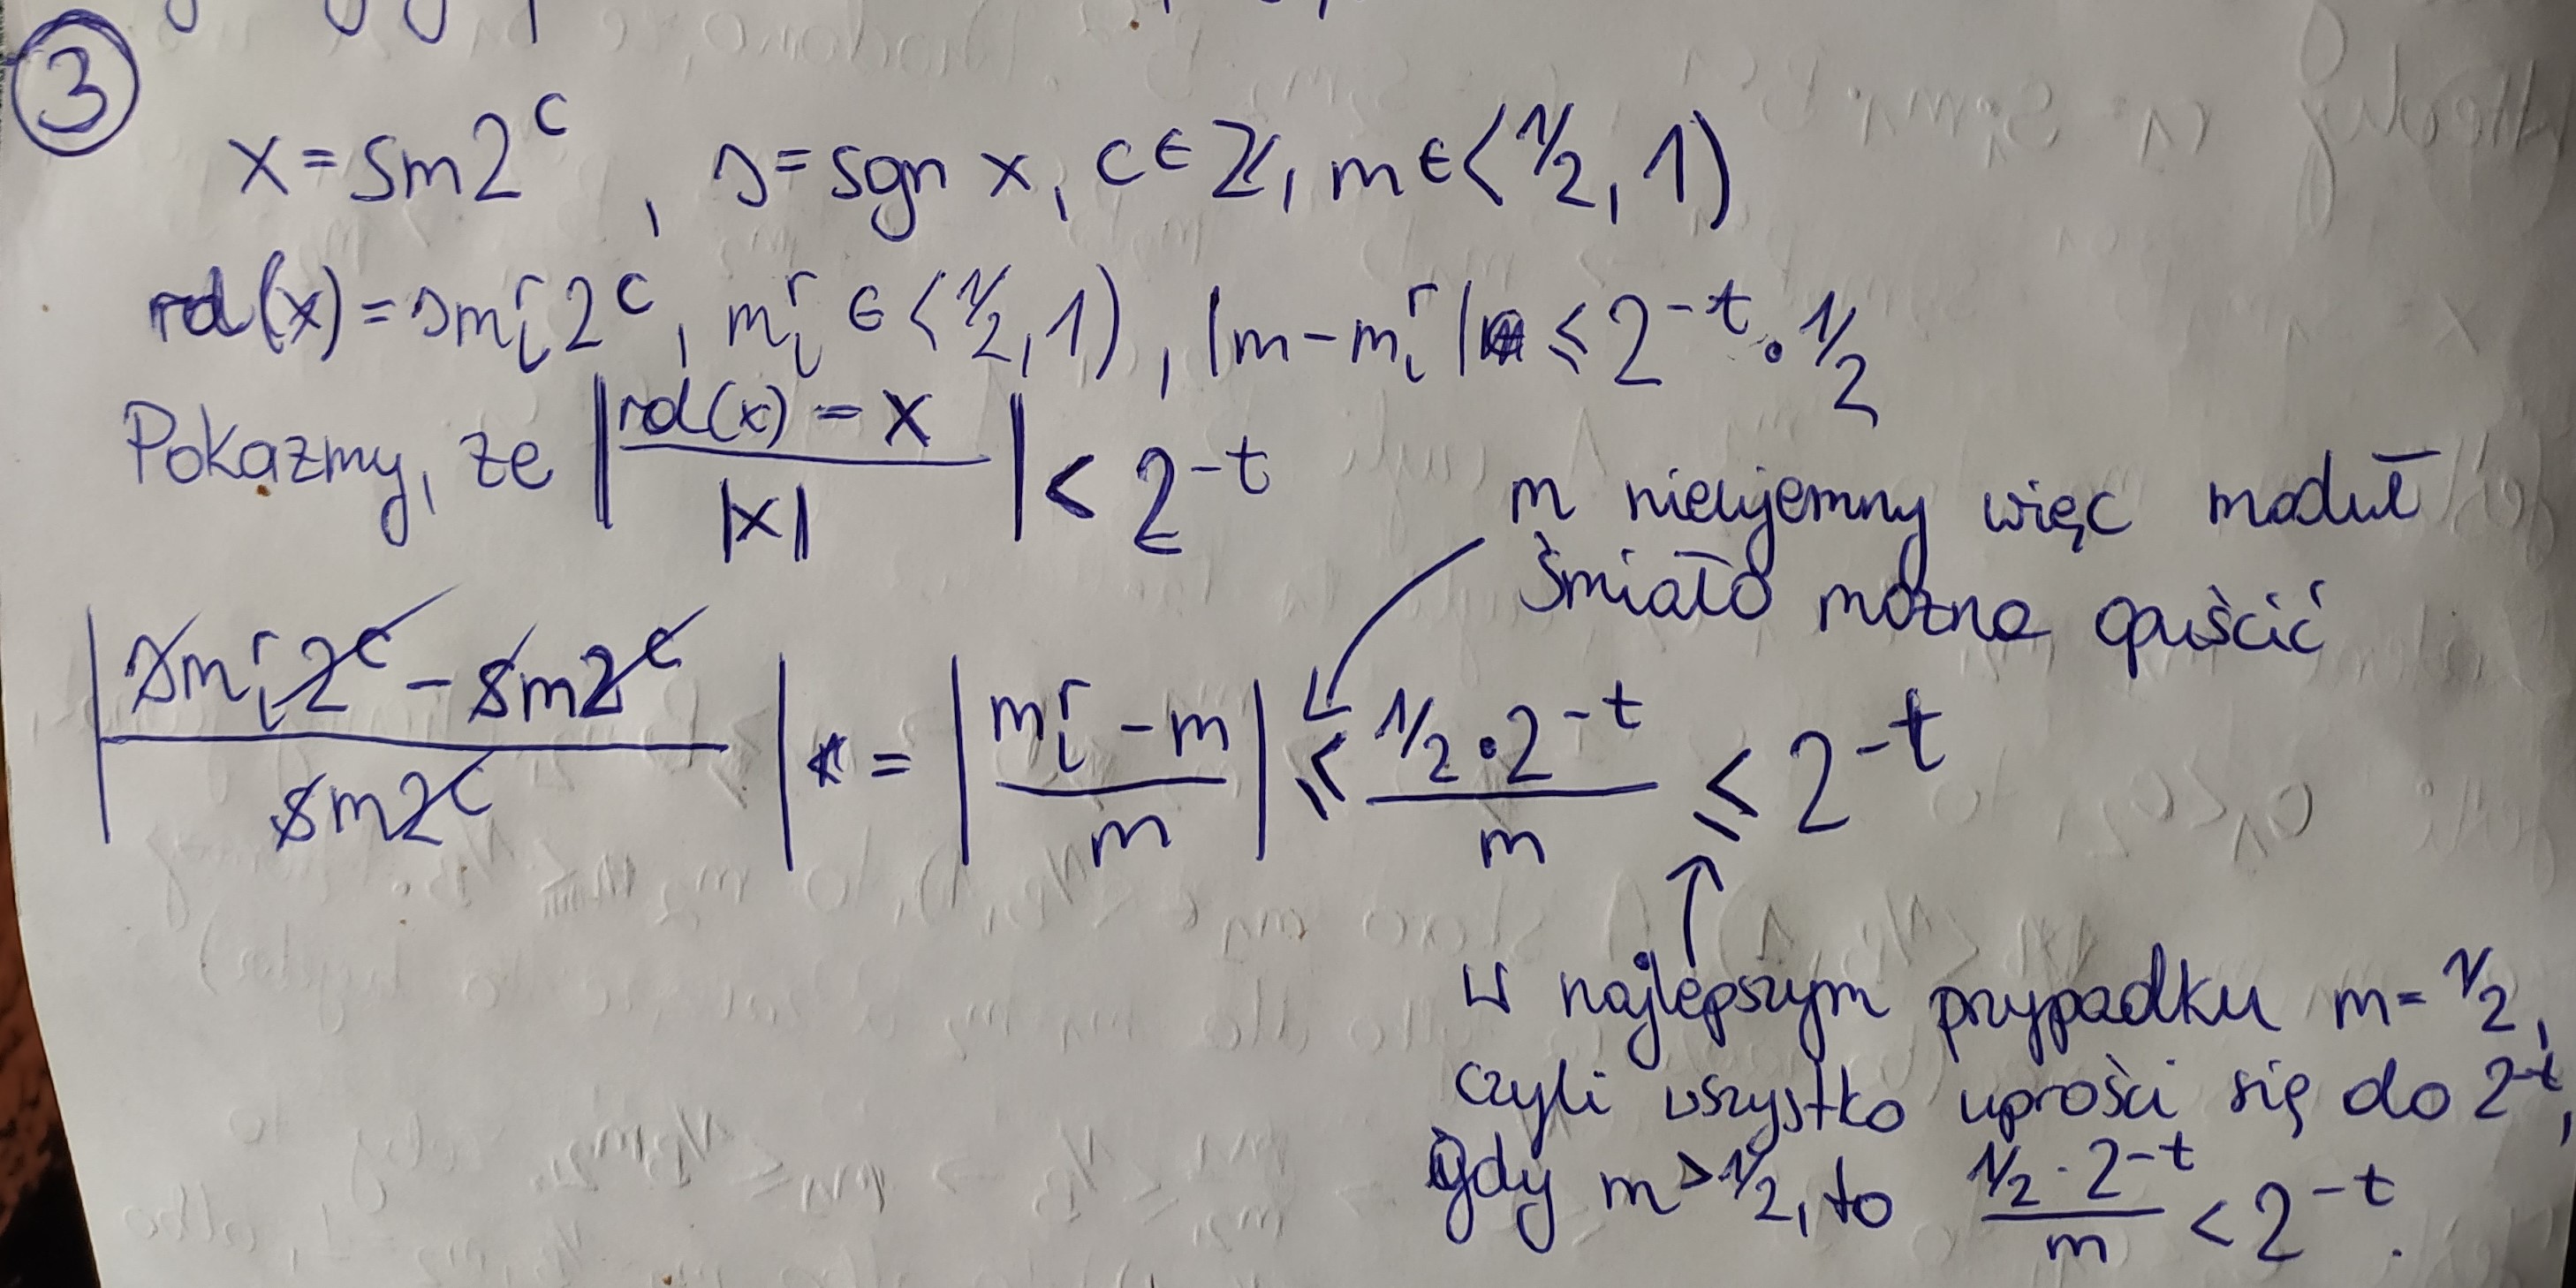 3
x = sm2^c, s = sgn x, c ∈ ℤ, m ∈ <1/2, 1)
rd(x) = sm_t^r 2^c, m_t^r ∈ <1/2, 1), |m - m_t^r| ≤ 2^-t · 1/2
Pokażmy, że |rd(x) - x / |x|| < 2^-t
m nieujemny więc moduł
śmiało można opuścić
|sm_t^r 2^c - sm2^c / sm2^c| = |m_t^r - m / m| ≤ 1/2 · 2^-t / m ≤ 2^-t
W najlepszym przypadku m = 1/2,
czyli wszystko uprości się do 2^-t,
gdy m > 1/2, to 1/2 · 2^-t / m < 2^-t.